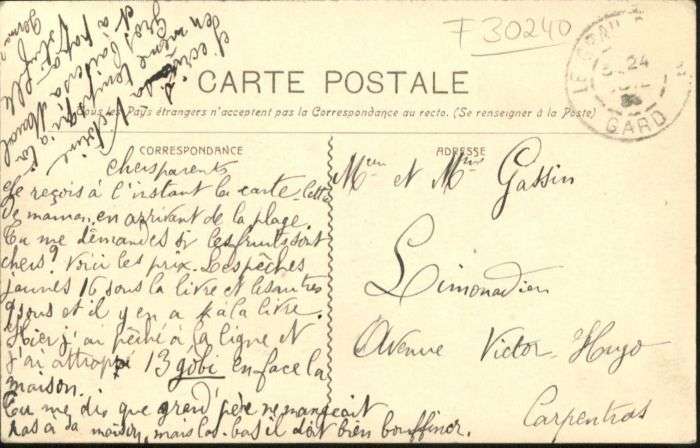 F 30240
LE GRAU
24
GARD
CARTE POSTALE
Tous les Pays étrangers n'acceptent pas la Correspondance au recto. (Se renseigner à la Poste)
CORRESPONDANCE
chers parents
Je reçois à l'instant la carte-lettre
de maman en arrivant de la plage.
Tu me demandes si les fruits sont
chers? Voici les prix. Les pêches
jaunes 16 sous la livre et les autres
9 sous et il y en a à la livre.
Hier j'ai pêché à la ligne et
j'ai attrapé 13 gobi en face la
maison.
Tu me dis que grand père ne mangeait
pas à la maison, mais là-bas il doit bien bouffiner.
ADRESSE
Mr et Mme Gassin
Limonadier
Avenue Victor-Hugo
Carpentras